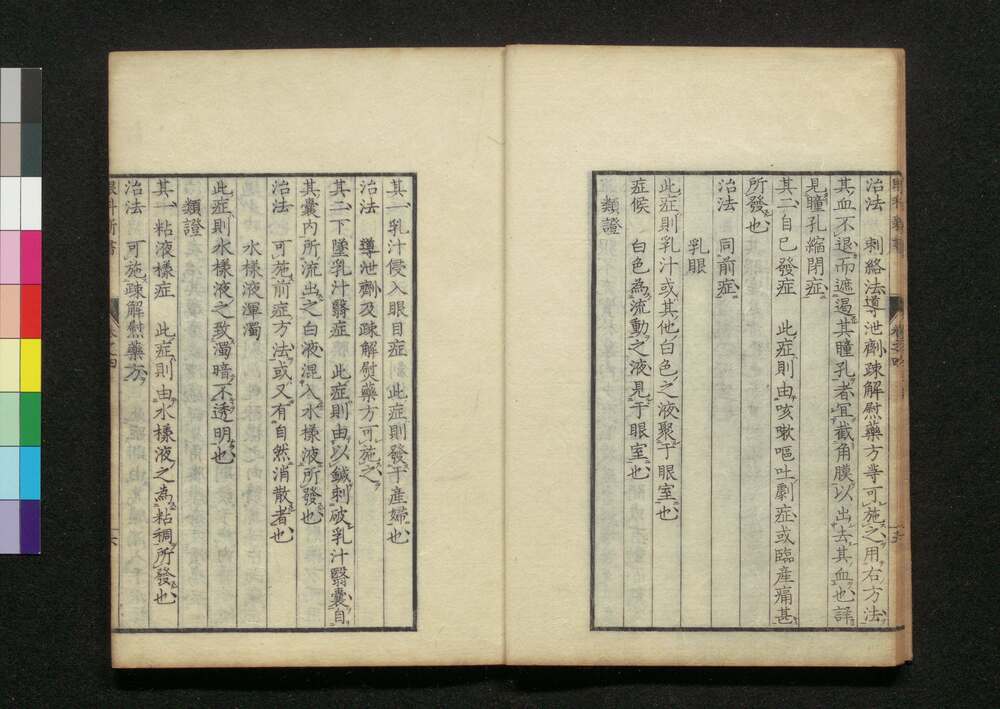 治法　刺絡法導泄劑疎解慰藥方等可施之用右方法
其血不退而遮遏其瞳孔者宜截角膜以出去其血也詳
見瞳孔縮閉症
其二自已發症　此症則由咳嗽嘔吐劇症或臨産痛甚
所發也
治法　同前症
乳眼
此症則乳汁或其他白色之液聚于眼室也
症候　白色為流動之液見于眼室也
類證
其一乳汁侵入眼目症　此症則發于産婦也
治法　導泄劑及疎解慰藥方可施之
其二下墜乳汁翳症　此症則由以鍼刺破乳汁翳嚢自
其嚢内所流出之白液混入水樣液所發也
治法　可施前症方法或又有自然消散者也
水樣液渾濁
此症則水樣液之致濁暗不透明也
類證
其一粘液樣症　此症則由水樣液之為粘稠所發也
治法　可施疎解慰藥方